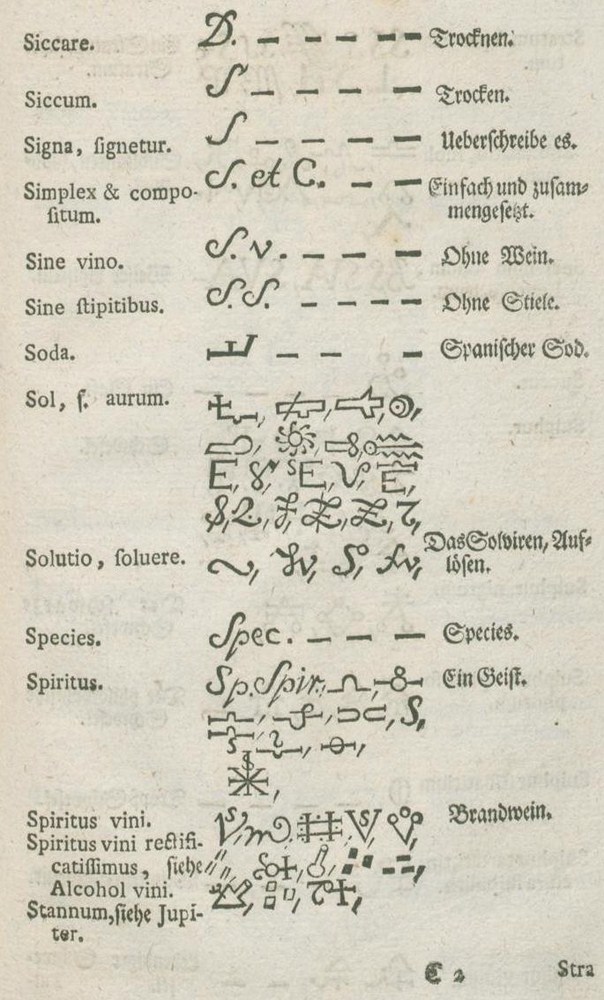 Siccare. D. Trocknen.
Siccum. S Trocken.
Signa, ſignetur. S Ueberſchreibe es.
Simplex & compo- S. et C. Einfach und zuſam-
ſitum. mengeſetzt.
Sine vino. S. v. Ohne Wein.
Sine ſtipitibus. S. S. Ohne Stiele.
Soda. Spaniſcher Sod.
Sol, ſ. aurum.
Solutio, ſoluere. Das Solviren, Auf-
löſen.
Species. Spec. Species.
Spiritus. Sp. Spir. Ein Geiſt.
Spiritus vini. Brandwein.
Spiritus vini rectifi-
catiſſimus, ſiehe
Alcohol vini.
Stannum, ſiehe Jupi-
ter.
C 2 Stra